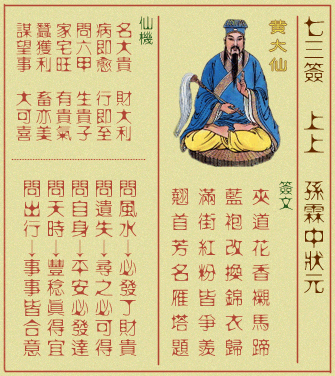 七三簽 上上 孫霖中狀元
黃大仙
簽文
夾道花香襯馬蹄
藍袍改換錦衣歸
滿街紅粉皆爭羨
翹首芳名雁塔題
仙機
名大貴 財大利
病即愈 行即至
問六甲 生貴子
家宅旺 有貴氣
蠶獲利 畜亦美
謀望事 大可喜
問風水→必發了財貴
問遺失→尋之必可得
問自身→平安必發達
問天時→豐稔眞得宜
問出行→事事皆合意